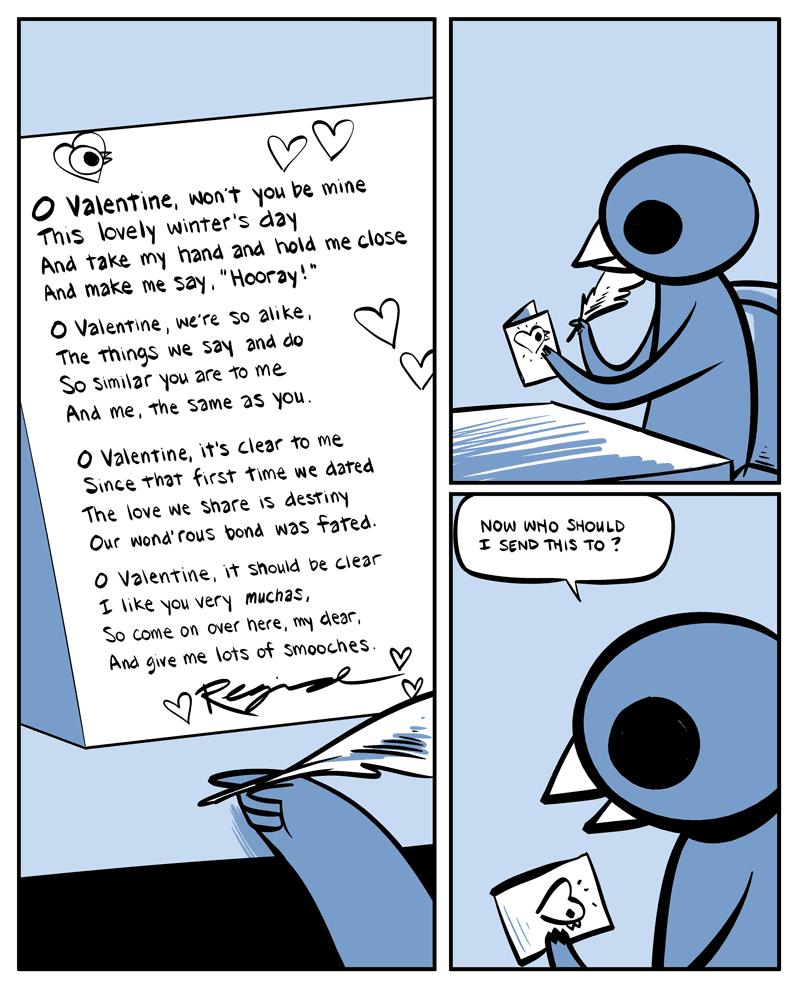 O Valentine, won't you be mine
This lovely winter's day
And take my hand and hold me close
And make me say, "Hooray!"
O Valentine, we're so alike,
The things we say and do
So similar you are to me
And me, the same as you.
O Valentine, it's clear to me
Since that first time we dated
The love we share is destiny
Our wond'rous bond was fated.
O Valentine, it should be clear
I like you very muchas,
So come on over here, my dear,
And give me lots of smooches.
NOW WHO SHOULD
I SEND THIS TO?